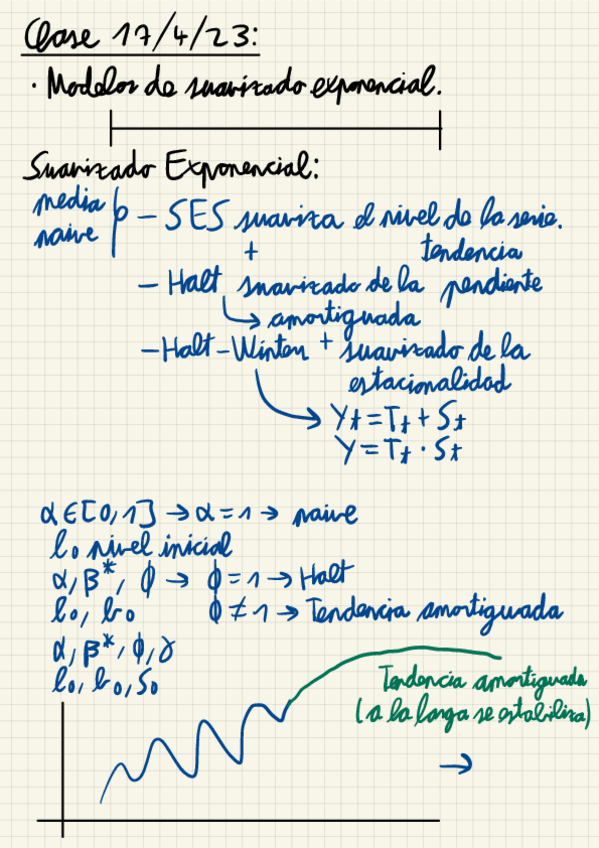 Clase 17/4/23:
· Modelos de suavizado exponencial.
Suavizado Exponencial:
media naive
- SES suaviza el nivel de la serie.
+ tendencia
- Halt suavizado de la pendiente
↳ amortiguada
- Halt-Winten + suavizado de la
estacionalidad
Yt = Tt + St
Y = Tt · St
α ∈ [0,1] → α = 1 → naive
l₀ nivel inicial
α, β*, ϕ → ϕ = 1 → Halt
l₀, b₀ ϕ ≠ 1 → Tendencia amortiguada
α, β*, ϕ, γ
l₀, b₀, S₀
Tendencia amortiguada
(a la larga se estabiliza)
→